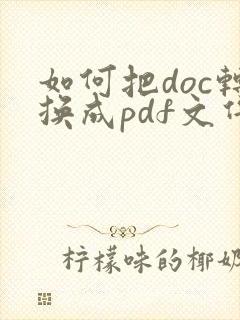 如何把doc转
换成pdf文件
柠檬味的椰奶